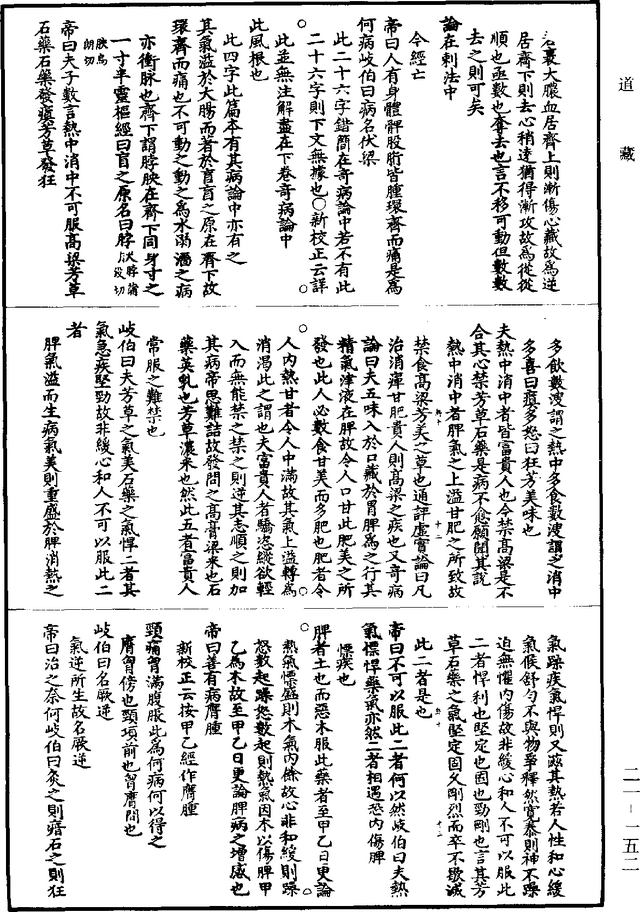 道藏
正裹大膿血居齊上則漸傷心藏故爲逆
居齊下則去心稍遠猶得漸攻故爲從從
順也亟數也奪去也言不移可動但數數
去之則可矣
論在刺法中
今經亡
帝曰人有身體髀股胻皆腫環齊而痛是爲
何病岐伯曰病名伏梁
此二十六字錯簡在奇病論中若不有此
二十六字則下文無據也○新校正云詳
此並無注解盡在下卷奇病論中
此風根也
此四字此篇本有其病論中亦有之
其氣溢於大腸而著於肓肓之原在齊下故
環齊而痛也不可動之動之爲水溺濇之病
亦衝脉也齊下謂脖胦在齊下同身寸之
一寸半靈樞經曰肓之原名曰脖
帝曰夫子數言熱中消中不可服高梁芳草
石藥石藥發瘨芳草發狂
多飲數溲謂之熱中多食數溲謂之消中
多喜曰瘨多怒曰狂芳美味也
夫熱中消中者皆富貴人也今禁高梁是不
合其心禁芳草石藥是病不愈願聞其說
熱中消中者脾氣之上溢甘肥之所致故
禁食高梁芳美之草也通評虛實論曰凡
治消癉甘肥貴人則高梁之疾也又奇病
論曰夫五味入於口藏於胃脾爲之行其
精氣津液在脾故令人口甘此肥美之所
發也此人必數食甘美而多肥也肥者令
人內熱甘者令人中滿故其氣上溢轉爲
消渴此之謂也夫富貴人者驕恣縱欲輕
人而無能禁之禁之則逆其志順之則加
其病帝思難詰故發問之高膏梁米也石
藥英乳也芳草濃美也然此五者富貴人
常服之難禁也
岐伯曰夫芳草之氣美石藥之氣悍二者其
氣急疾堅勁故非緩心和人不可以服此二
者
脾氣溢而生病氣美則重盛於脾消熱之
氣躁疾氣悍則又滋其熱若人性和心緩
氣候舒勻不與物爭釋然寬泰則神不躁
迫無懼內傷故非緩心和人不可以服此
二者悍利也堅定也固也勁剛也言其芳
草石藥之氣堅定固久剛烈而卒不歇滅
此二者是也
帝曰不可以服此二者何以然岐伯曰夫熱
氣慓悍藥氣亦然二者相遇恐內傷脾
慓疾也
脾者土也而惡木服此藥者至甲乙日更論
熱氣慓盛則木氣內餘故心非和緩則躁
怒數起躁怒數起則熱氣因木以傷脾甲
乙爲木故至甲乙日更論脾病之增減也
帝曰善有病膺腫
新校正云按甲乙經作癰腫
頸痛胷滿腹脹此爲何病何以得之
膺胷傍也頸項前也胷膺間也
岐伯曰名厥逆
氣逆所生故名厥逆
帝曰治之奈何岐伯曰灸之則瘖石之則狂
二一－一五二